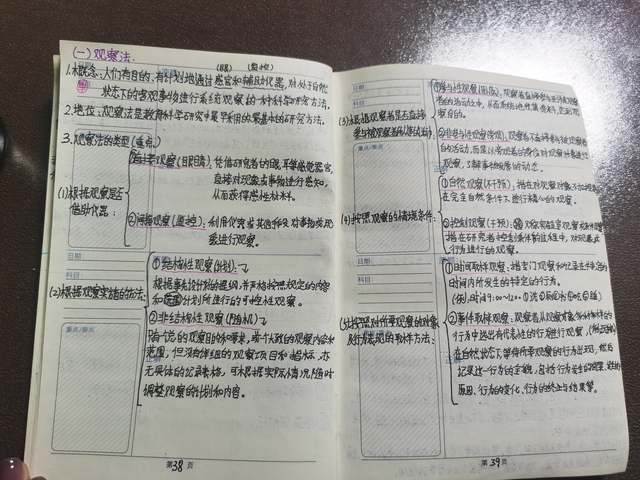 (一)观察法:
(眼) (监控)
1.概念:人们有目的、有计划地通过感官和辅助仪器,对处于自然
状态下的客观事物进行系统观察的一种科学研究方法。
2.地位:观察法是教育科学研究中最早采用的最基本的研究方法。
3.观察法的类型(重点)
(1)根据观察是否
借助仪器:
①直接观察(眼睛):凭借研究者的眼、耳等感觉器官,
直接对现象或事物进行感知,
从而获得感性材料。
②间接观察(监控):利用仪器或其他手段对事物或现
象进行观察。
(2)根据观察实施的方法:
①结构性观察(计划):
根据事先设计好的提纲,并严格按照规定的内容
和计划所进行的可控性观察。
②非结构性观察(随机)
随有总的观察目的和要求,或个大致的观察内容和
范围,但没有详细的观察项目和指标,亦
无具体的记录表格,可根据实际情况随时
调整观察的计划和内容。
日期:
科目:
重点/要点
第38页
日期:
科目:
重点/要点
(3)根据观察者是否直接参
与被观察者的活动:
①参与性观察(卧底):观察者直接参与到被观察
者的活动之中,从而系统地收集资料,
②非参与性观察:观察者不直接参与被观察者
的活动,而是以旁观者的身份对观察对象进行
观察,了解事物发展的动态。
(4)按照观察的情境条件:
①自然观察(不干预):指在对观察对象不加控制
在完全自然条件下进行的观察。
②控制观察(干预):
指在研究者控制条件的过程中,对
行为进行的观察。
(5)按照对所要观察的对象
及行为表现的取样方法:
①时间取样观察:指专门观察和记录在特定的
时间内所发生的特定的行为。
(例,时间9:00~12:00
②事件取样观察:观察者从观察对象
行为中选出有代表性的行为进行观察,
在自然状态下,等待所要观察的行为出现,然后
记录这一行为的全貌,包括行为发生的
原因、行为的变化、行为的终止与结果等。
日期:
科目:
重点/要点
第39页